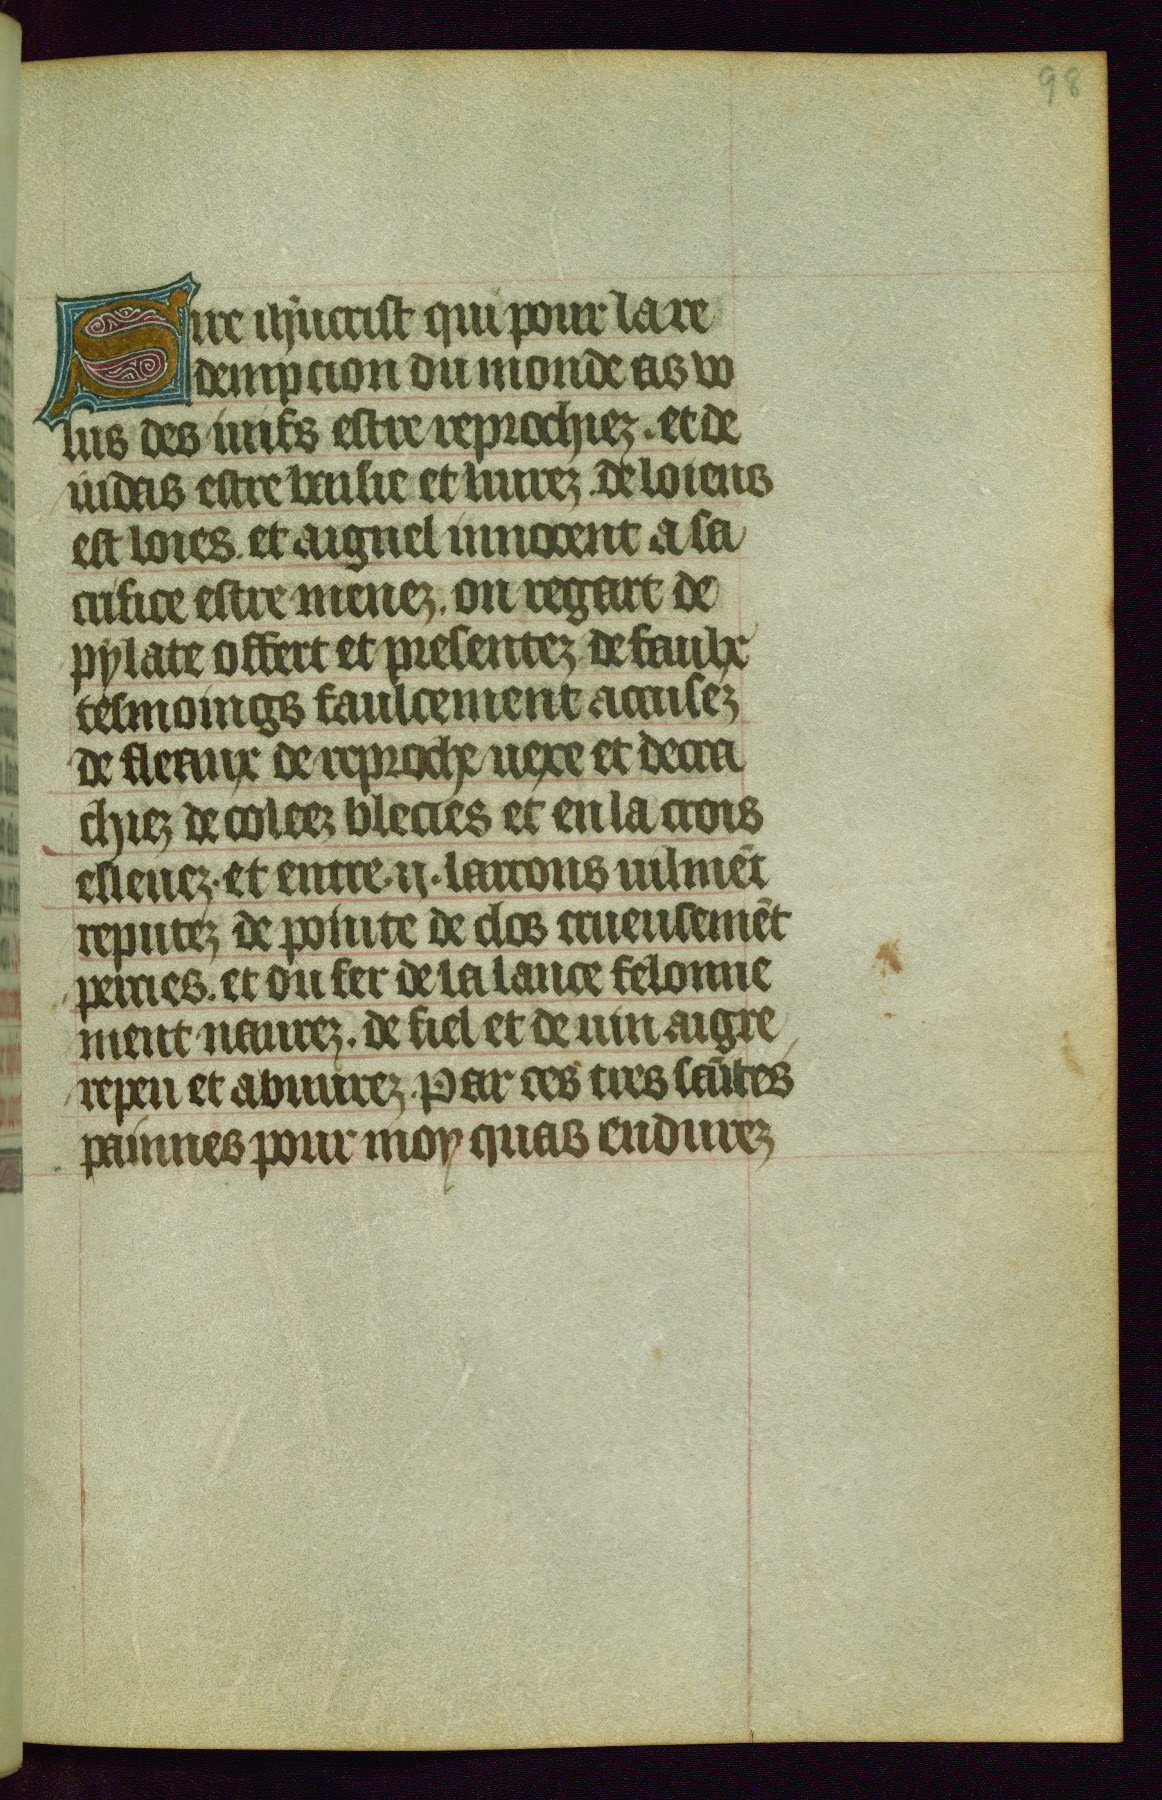 98
Sire ihũcrist qui pour la re
dempcion du monde as vo
lus des iuifs estre reprochiez. et de
iudas estre baisie et liurez. de loiens
est loies. et aignel innocent a sa
crifice estre menez. on regart de
pylate offert et presentez de faulx
tesmoings faulcement accusez
de fleaux de reproche uexe et decra
chiez de coleez blecies et en la crois
esleuez. et entre .ij. larrons uilmẽt
reputez de pointe de clos crueusemẽt
percies. et du fer de la lance felonne
ment naurez. de fiel et de uin aigre
repeu et abuurez. Par ces tres saĩtes
painnes pour moy quas endurez